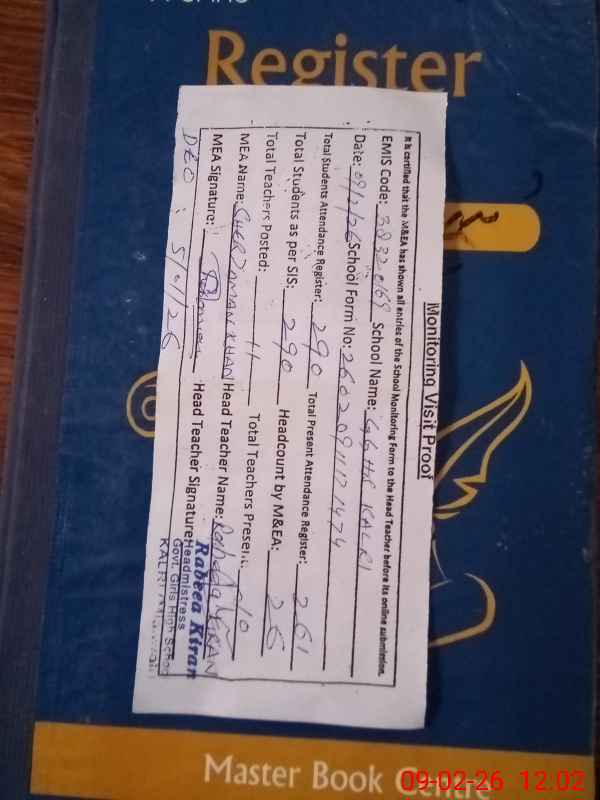 Register
Monitoring Visit Proof
It is certified that the M&EA has shown all entries of the School Monitoring Form to the Head Teacher before its online submission.
EMIS Code: 38320169 School Name: GGHS KALRI
Date: 09/2/26 School Form No: 
Total Students Attendance Register: 290 Total Present Attendance Register: 261
Total Students as per SIS: 290 Headcount by M&EA:
Total Teachers Posted: 11 Total Teachers Present: 10
MEA Name: SHER ZAMAN KHAN Head Teacher Name: Rabeea KIRAN
MEA Signature: Head Teacher Signature
Rabeea Kiran
Headmistress
Govt. Girls High School
KALRI
DEO : 5/01/26
Master Book Centre
09-02-26 12:02